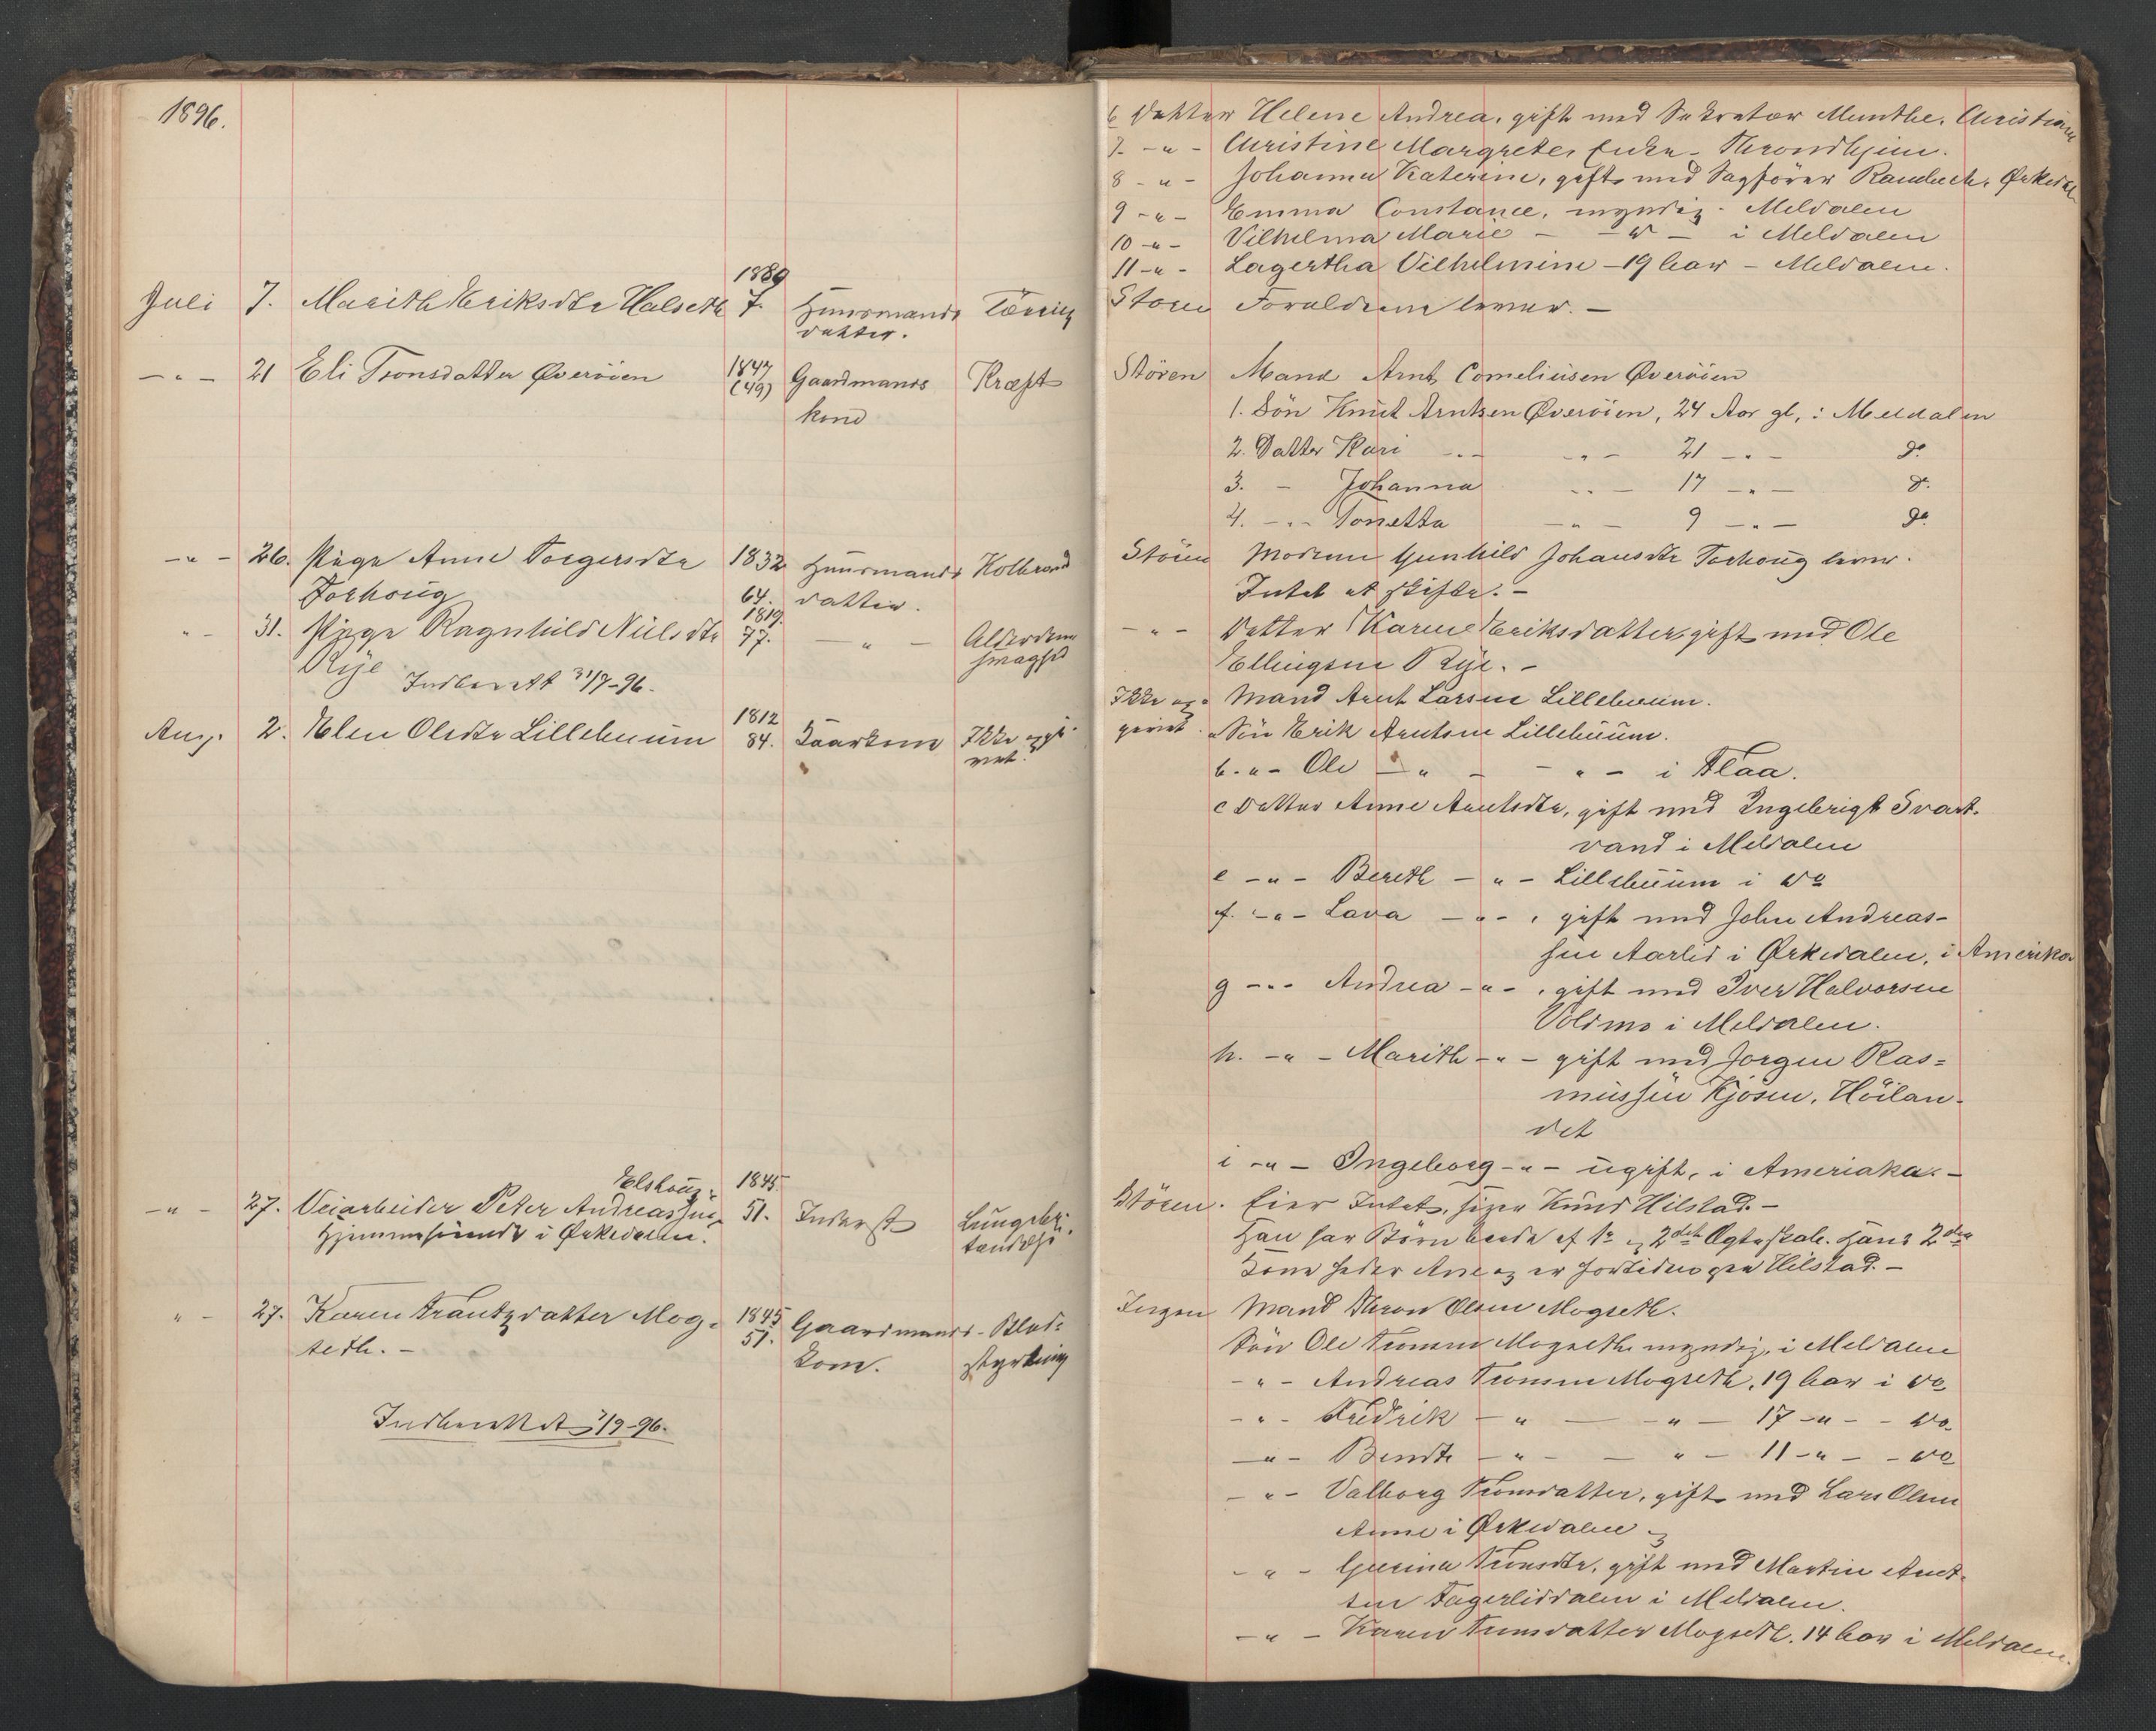 1896.
Juli 7. Marith Eriksdtr Halseth 1889 7. Huusmands Tæring
datter.
— " — 21 Eli Tronsdatter Øverøien 1847 (49) Gaardmands Kræft
kone
— " — 26. Pige Anne Torgersdtr 1832 Huusmands Kolbrand
Forhoug 64. datter.
" — 31. Pige Ragnhild Nilsdtr 1819. 77. — " — Alderdoms
Rye svaghed
Indberettt 31/7-96.
Aug. 2. Elen Olsdtr Lillebuum 1812 84. Kaarkone Ikke opgi-
vet.
Elshoug. 1845.
— " — 27. Veiarbeider Peter Andreassen 51. Inderst Lungebe-
Hjemmehørende i Ørkedalen. tændelse
" — 27. Karen Frantzdatter Mog- 1845 51. Gaardmands- Blod-
seth. — Kone. styrtning
Indberettet 1/9-96.
6 Datter Helene Andrea, gift med Sekretær Munthe, Christiania
7. — " — Christine Margrete, Enke - Throndhjem.
8 — " — Johanna Katerine, gift med Sagfører Rambech, Ørkedal
9 — " — Emma Constance, myndig - Meldalen
10 — " — Vilhelma Marie — — " — i Meldalen
11 — " — Lagertha Vilhelmine — 19 Aar — Meldalen.
Støren Forældrene lever. —
Støren Mand Arnt Corneliusen Øverøien
1. Søn Knut Arntsen Øverøien, 24 Aar gl, i Meldalen
2. Datter Kari — " — — " — 21 — " — do
3. — Johanna — " — 17 — " — do
4. — " — Tonetta — " — 9 — " — do
Støren Moderen Gunhild Johansdtr Forhoug lever.
Intet at skifte. —
— " — Datter Karen Eriksdatter, gift med Ole
Ellingsen Rye. —
Ikke op- Mand Arnt Larsen Lillebuum.
givet. a Søn Erik Arntsen Lillebuum.
b. — " — Ole — " — — " — i Flaa.
c Datter Anne Arntsdtr, gift med Ingebrigt Svart-
vand i Meldalen
e — " — Bereth — " — Lillebuum i do
f. — " — Lava — " — , gift med John Andreas-
sen Aarlid i Ørkedalen, i Amerika
g — " — Andrea — " — , gift med Iver Halvorsen
Voldmo i Meldalen.
h. — " — Marith — " — gift med Jørgen Ras-
mussen Kjøsen, Höilan-
det
i — " — Ingeborg — " — ugift, i Ameriaka. —
Støren. Eier Intet, siger Knud Hilstad. —
Han har Børn baade af 1ste og 2det Ægteskab. Hans 2den
Kone heder Ane og er fortiden paa Hilstad. —
Ingen Mand Thron Olsen Mogseth.
Søn Ole Tronsen Mogseth, myndig, i Meldalen
— " — Andreas Tronsen Mogseth, 19 Aar i do
— " — Fredrik — " — — " — 17 — " — - do
— " — Bendt — " — — " — 11 — " — - do
— " — Valborg Tronsdatter, gift med Lars Olsen
i Ørkedalen
— " — Gurina Tronsdtr, gift med Martin Arnt-
sen Fagerliddalen i Meldalen.
— " — Karen Tronsdatter Mogseth, 14 Aar i Meldalen.